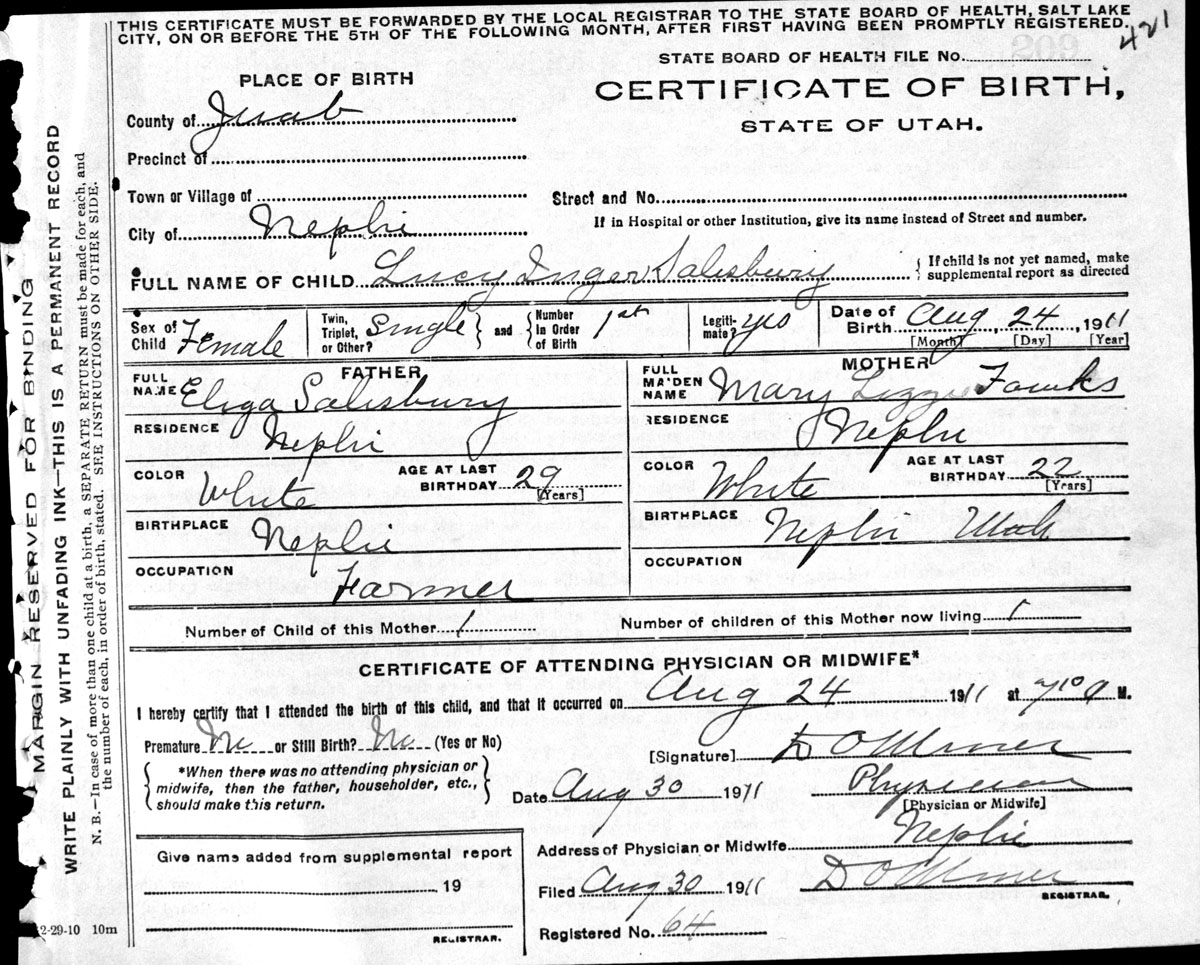 THIS CERTIFICATE MUST BE FORWARDED BY THE LOCAL REGISTRAR TO THE STATE BOARD OF HEALTH, SALT LAKE
CITY, ON OR BEFORE THE 5TH OF THE FOLLOWING MONTH, AFTER FIRST HAVING BEEN PROMPTLY REGISTERED.
421
STATE BOARD OF HEALTH FILE NO.
PLACE OF BIRTH
CERTIFICATE OF BIRTH,
STATE OF UTAH.
County of Juab
Precinct of
Town or Village of
Street and No.
City of Nephi
If in Hospital or other Institution, give its name instead of Street and number.
FULL NAME OF CHILD Lucy Inger Salisbury
{ If child is not yet named, make
supplemental report as directed
Sex of Child Female
Twin, Triplet, or Other? Single } and { Number In Order of Birth 1st
Legiti-mate? yes
Date of Birth Aug 24, 1911
[Month] [Day] [Year]
FATHER
FULL NAME Eliga Salisbury
RESIDENCE Nephi
COLOR White
AGE AT LAST BIRTHDAY 29
[Years]
BIRTHPLACE Nephi
OCCUPATION Farmer
MOTHER
FULL MAIDEN NAME Mary Lizzie Fowks
RESIDENCE Nephi
COLOR White
AGE AT LAST BIRTHDAY 22
[Years]
BIRTHPLACE Nephi Utah
OCCUPATION
Number of Child of this Mother 1
Number of children of this Mother now living 1
CERTIFICATE OF ATTENDING PHYSICIAN OR MIDWIFE*
I hereby certify that I attended the birth of this child, and that it occurred on Aug 24 1911 at 710 a M.
Premature No or Still Birth? No (Yes or No)
{ *When there was no attending physician or
midwife, then the father, householder, etc.,
should make this return. }
[Signature]
Date Aug 30 1911
Physician
[Physician or Midwife]
Address of Physician or Midwife Nephi
Filed Aug 30 1911
REGISTRAR.
Registered No. 64
Give name added from supplemental report
19
REGISTRAR.
MARGIN RESERVED FOR BINDING
WRITE PLAINLY WITH UNFADING INK—THIS IS A PERMANENT RECORD
N. B.—In case of more than one child at a birth, a SEPARATE RETURN must be made for each, and
the number of each, in order of birth, stated. SEE INSTRUCTIONS ON OTHER SIDE.
2-29-10 10m